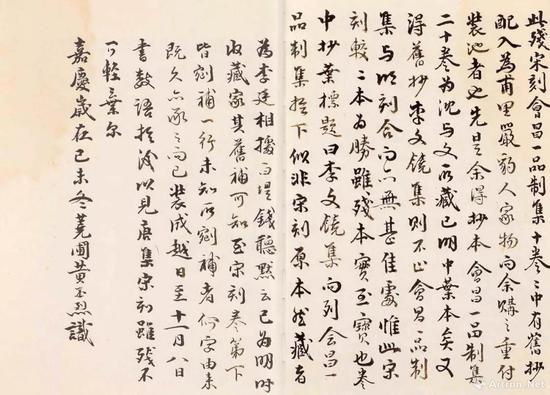 此殘宋刻會昌一品制集十卷〻中有舊抄
配入為甫里嚴豹人家物而余購之重付
裝池者也先是余得抄本會昌一品制集
二十卷為沈與文所藏已明中葉本矣又
得舊抄李文饒集則不止會昌品制
集與明刻合而亦無甚佳處惟此宋
刻較二本為勝雖殘本實至寶也卷
中抄葉標題曰李文饒集而列會昌一
品制集於下似非宋刻原本然藏者
為李廷相據而是錢聽默云已為明時
收藏家其舊補可知至宋刻卷第下
皆剜補一行未知所剜補者何字由來
既久亦家之而已裝成越日至十一月八日
書數語於後以見唐集宋刻雖殘不
可輕棄尔
嘉慶歲在己未冬蕘圃黃丕烈識
Artron.Net